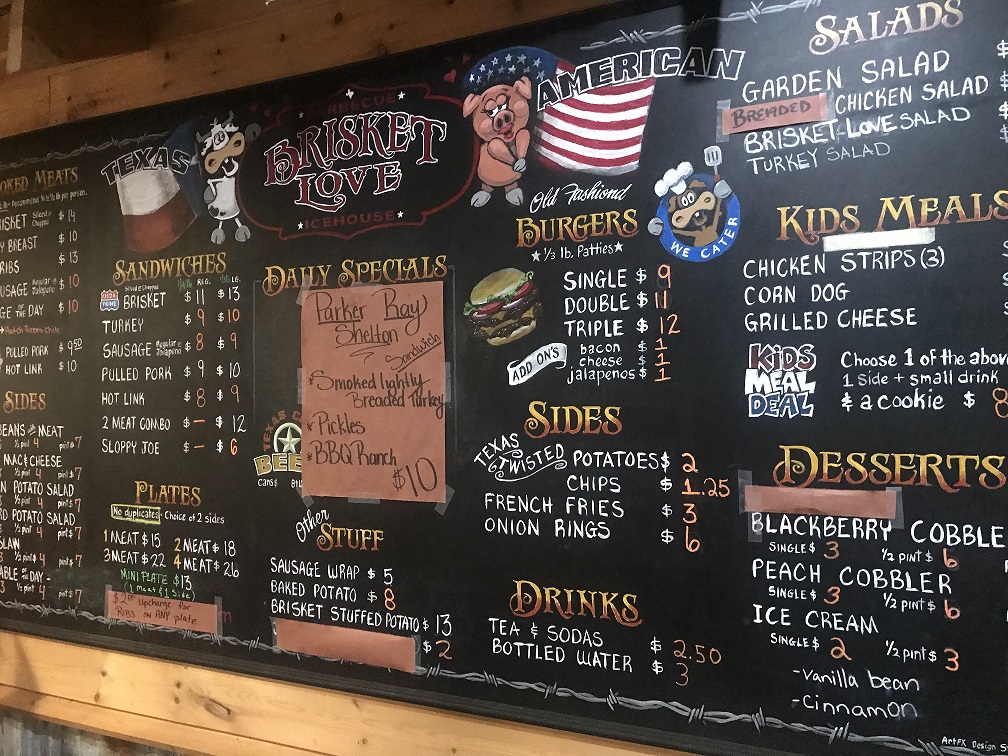 TEXAS
BARBECUE
BRISKET
LOVE
ICEHOUSE
AMERICAN
OKED MEATS
ISKET Sliced or Chopped $14
Y BREAST $10
RIBS $13
USAGE Regular or Jalapeno $10
GE OF THE DAY $10
Hatch Green Chile
PULLED PORK $9.50
HOT LINK $10
SIDES
BEANS w/ MEAT
½ pint 4 pint $7
MAC & CHEESE
½ pint 4 pint $7
N POTATO SALAD
½ pint 4 pint $7
D POTATO SALAD
½ pint 4 pint $7
SLAW
½ pint $4 pint $7
ABLE OF THE DAY -
½ pint 4 pint $7
SANDWICHES
REG. LG.
USDA
PRIME
Sliced or Chopped
BRISKET $11 $13
TURKEY $9 $10
SAUSAGE Regular or Jalapeno $8 $9
PULLED PORK $9 $10
HOT LINK $8 $9
2 MEAT COMBO $— $12
SLOPPY JOE $— $6
PLATES
No duplicates - Choice of 2 sides
1 MEAT $15 2 MEAT $18
3 MEAT $22 4 MEAT $26
MINI PLATE $13
(1 meat & 1 side)
$2.00 Upcharge for
RIBS on ANY plate
DAILY SPECIALS
Parker Ray
Shelton
Sandwich
*Smoked lightly
Breaded Turkey
*Pickles
*BBQ Ranch
$10
TEXAS
BEE
cans $
Other
STUFF
SAUSAGE WRAP $5
BAKED POTATO $8
BRISKET STUFFED POTATO $13
$2
Old Fashiond
BURGERS
★⅓ lb. Patties★
SINGLE $9
DOUBLE $11
TRIPLE $12
ADD ON'S
bacon $1
cheese $1
jalapenos $1
WE CATER
SIDES
TEXAS
TWISTED POTATOES $2
CHIPS $1.25
FRENCH FRIES $3
ONION RINGS $6
DRINKS
TEA & SODAS $2.50
BOTTLED WATER $3
SALADS
GARDEN SALAD $
BREADED CHICKEN SALAD $
BRISKET-LOVE SALAD
TURKEY SALAD
KIDS MEALS
CHICKEN STRIPS (3)
CORN DOG
GRILLED CHEESE
KiDS
MEAL
DEAL
Choose 1 of the abov
1 side + small drink
& a cookie $8
DESSERTS
BLACKBERRY COBBLE
SINGLE $3 ½ PINT $6
PEACH COBBLER
SINGLE $3 ½ PINT $6
ICE CREAM
SINGLE $2 ½ PINT $3
-vanilla bean
-Cinnamon
ArtFX Design